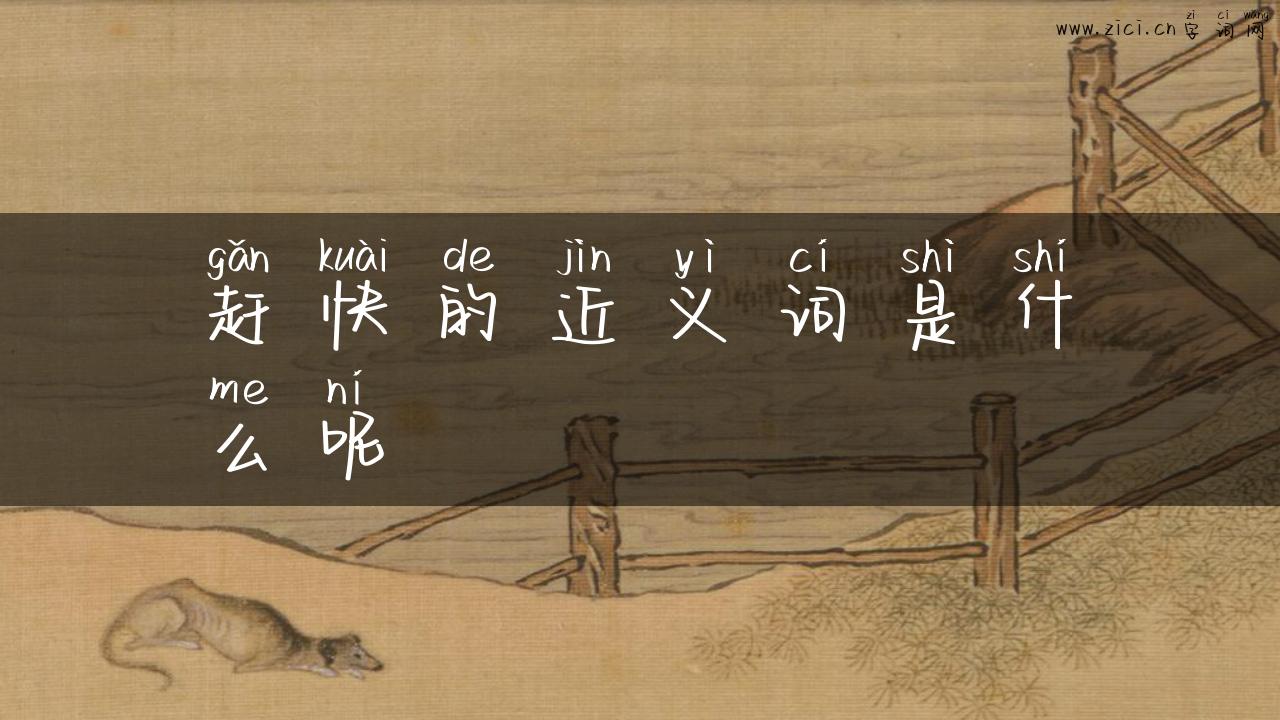 zì cí wǎng
www.zici.cn 字词网
gǎn kuài de jìn yì cí shì shí
赶快的近义词是什
me ní
么呢